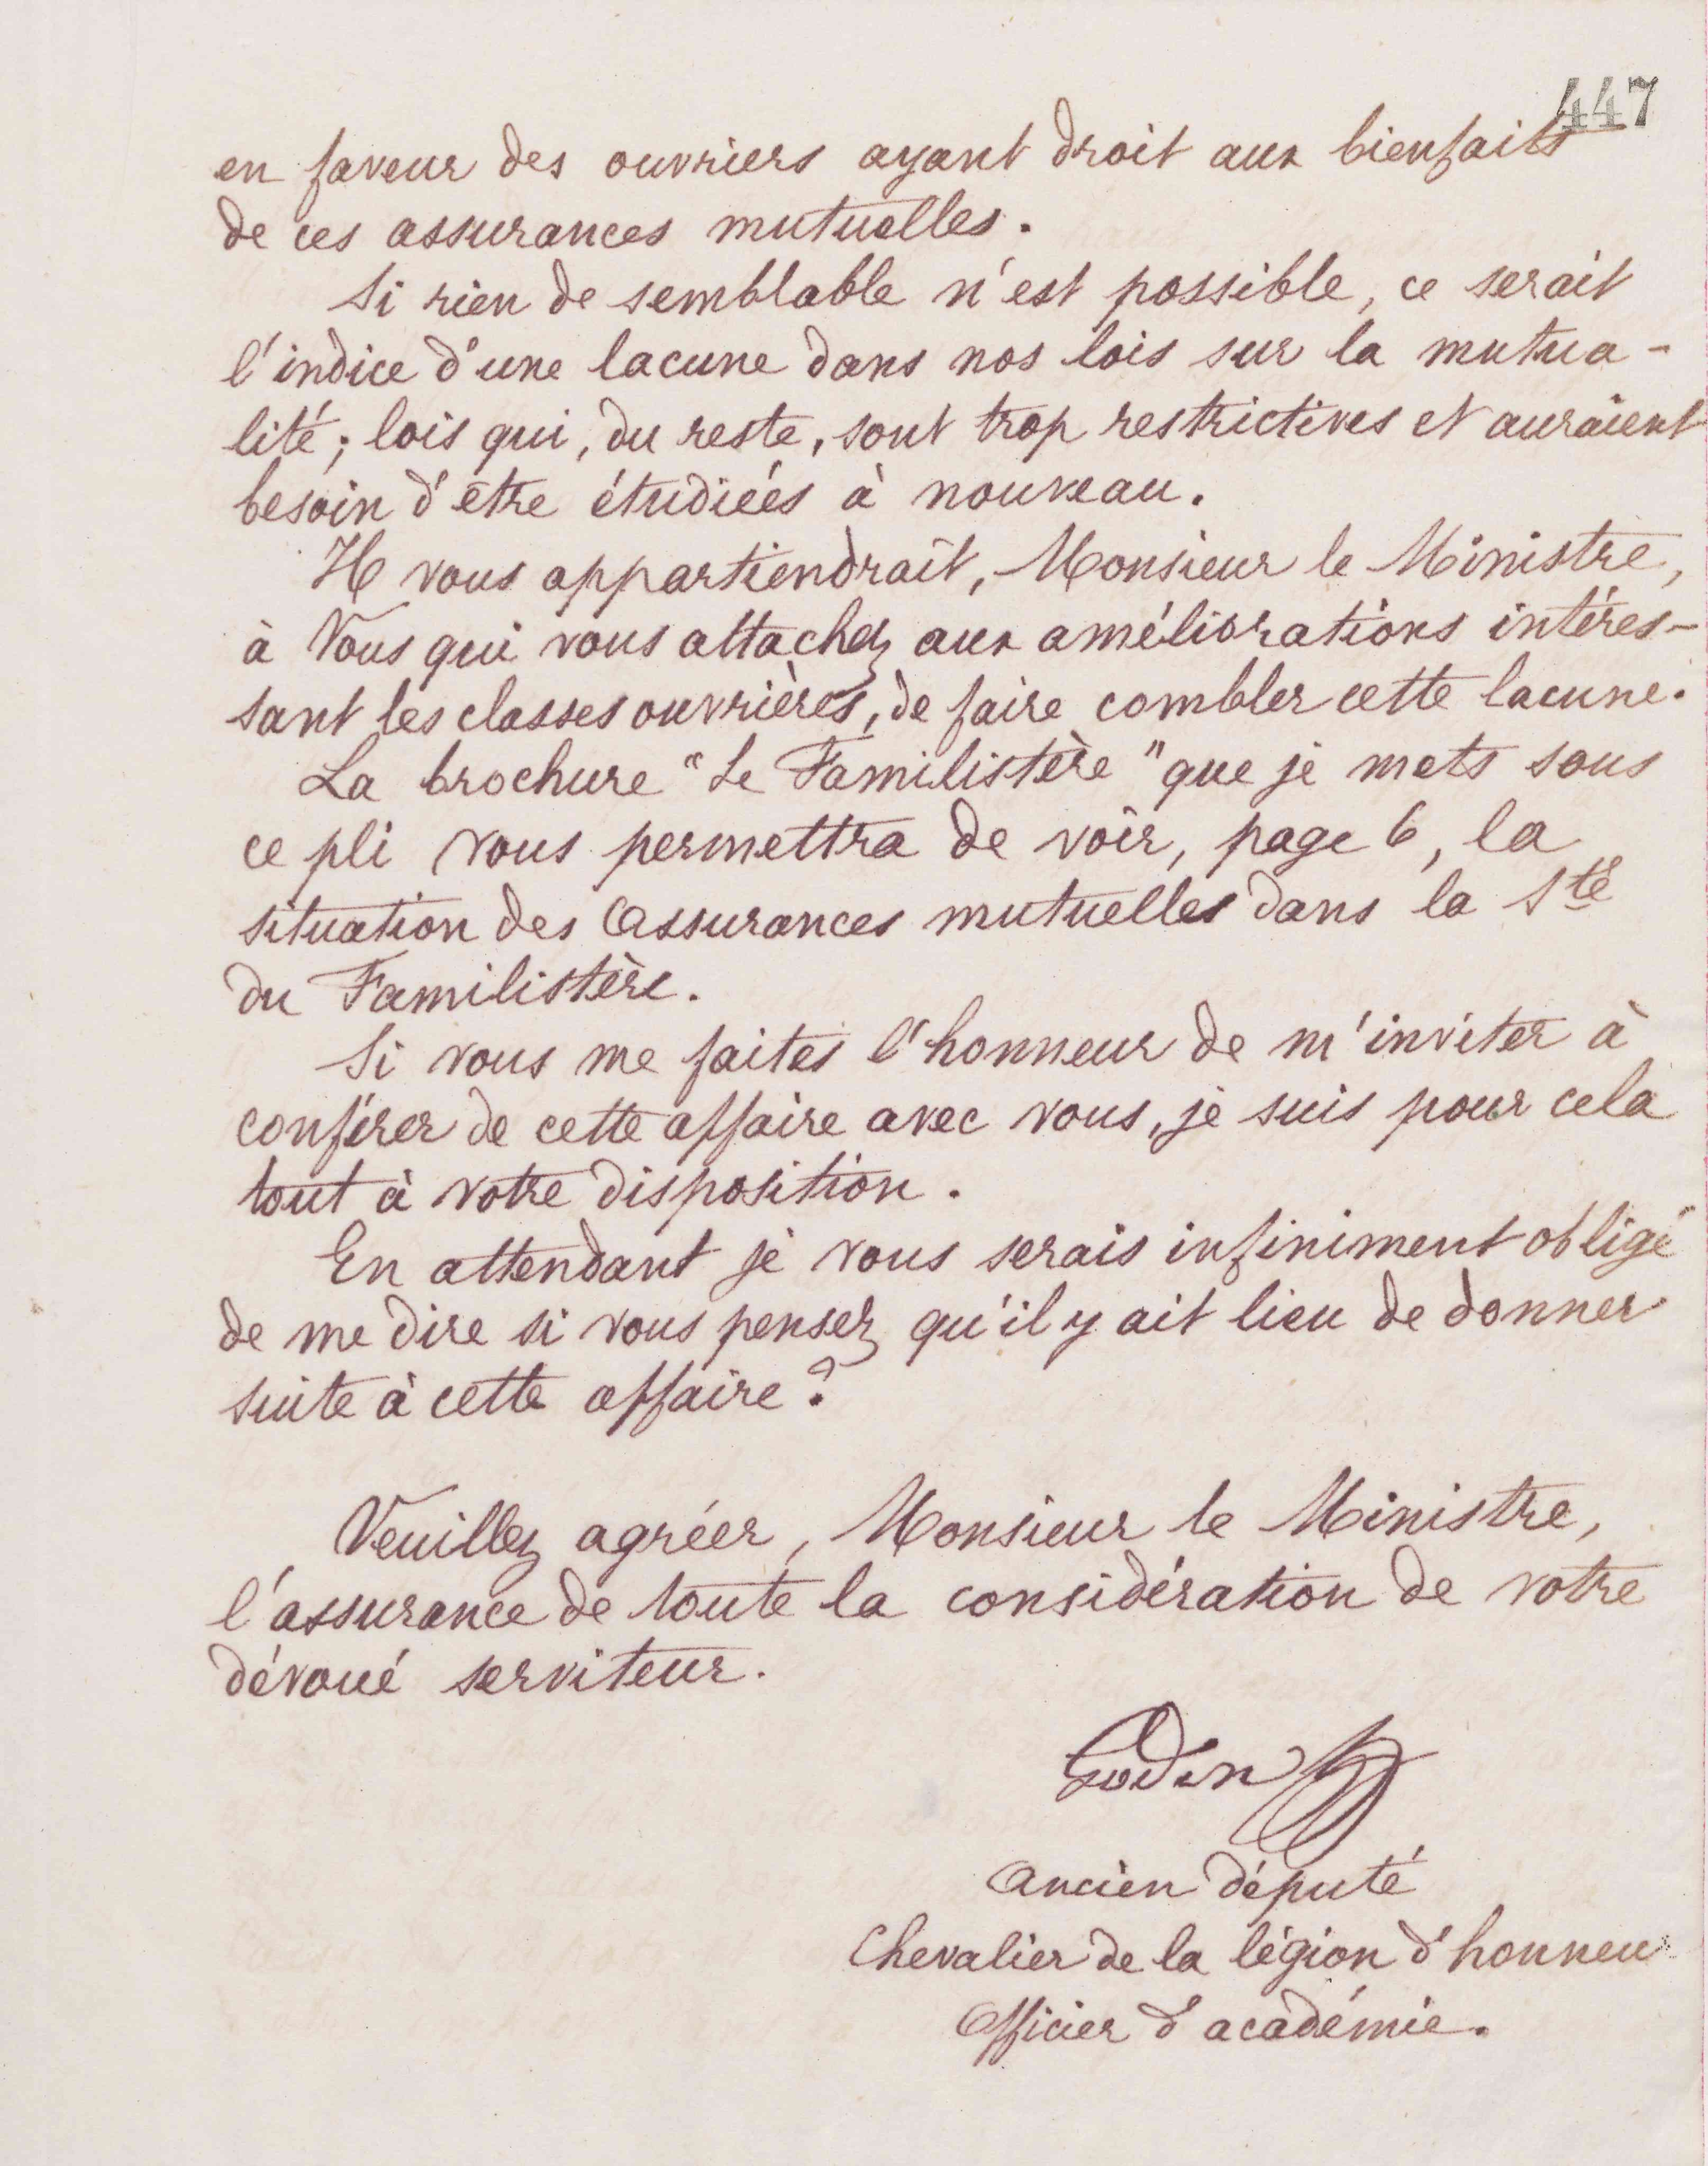 447
en faveur des ouvriers ayant droit aux bienfaits
de ces assurances mutuelles.
Si rien de semblable n'est possible, ce serait
l'indice d'une lacune dans nos lois sur la mutua-
lité; lois qui, du reste, sont trop restrictives et auraient
besoin d'être étudiées à nouveau.
Il vous appartiendrait, Monsieur le Ministre,
à Vous qui vous attachez aux améliorations intéres-
sant les classes ouvrières, de faire combler cette lacune.
La brochure "Le Familistère" que je mets sous
ce pli vous permettra de voir, page 6, la
situation des Assurances mutuelles dans la Sté
du Familistère.
Si vous me faites l'honneur de m'inviter à
conférer de cette affaire avec vous, je suis pour cela
tout à votre disposition.
En attendant je vous serais infiniment obligé
de me dire si vous pensez qu'il y ait lieu de donner
suite à cette affaire?
Veuillez agréer, Monsieur le Ministre,
l'assurance de toute la considération de votre
dévoué serviteur.
Godin
Ancien député
Chevalier de la légion d'honneur
Officier d'académie.